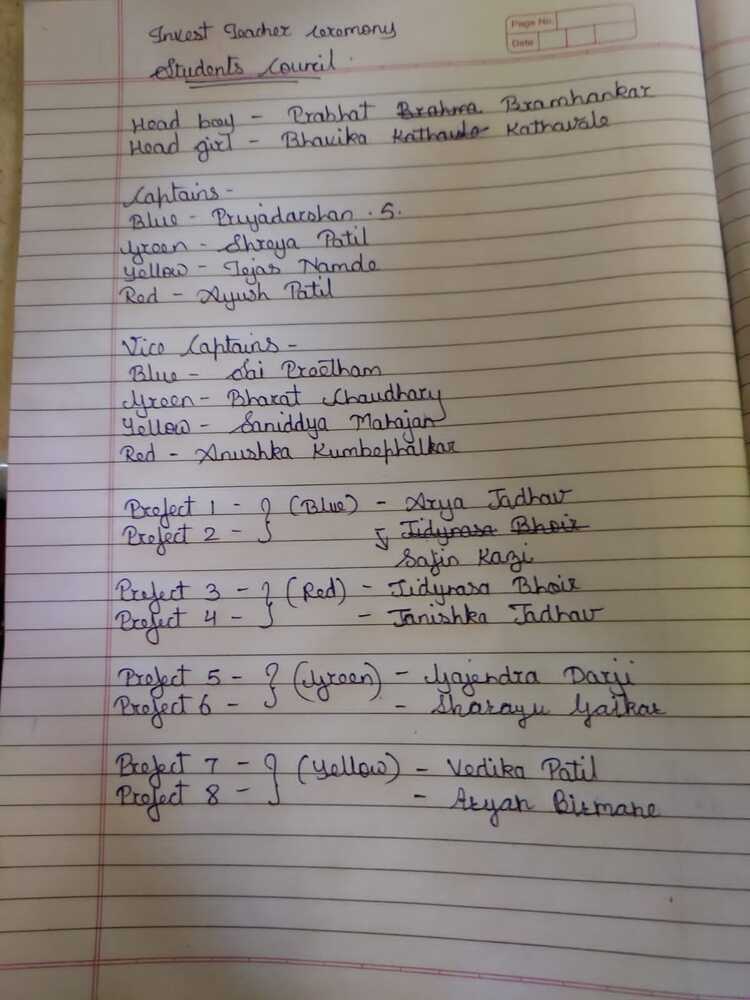 Page No.
Date
Invest Teacher ceremony
Students Council.
Head boy - Prabhat Brahma Bramhankar
Head girl - Bhavika Kathavle Kathavale
Captains -
Blue - Priyadarshan . S.
Green - Shreya Patil
Yellow - Tejas Namde
Red - Ayush Patil
Vice Captains -
Blue - Sai Preetham
Green - Bharat Chaudhary
Yellow - Saniddya Mahajan
Red - Anushka Kumbephalkar
Prefect 1 - } (Blue) - Arya Jadhav
Prefect 2 - Tidynasa Bhoir
Safin Kazi
Prefect 3 - } (Red) - Tidynasa Bhoir
Prefect 4 - - Tanishka Jadhav
Prefect 5 - } (Green) - Gajendra Darji
Prefect 6 - - Sharayu Gaikar
Prefect 7 - } (Yellow) - Vedika Patil
Prefect 8 - - Aryan Birmane